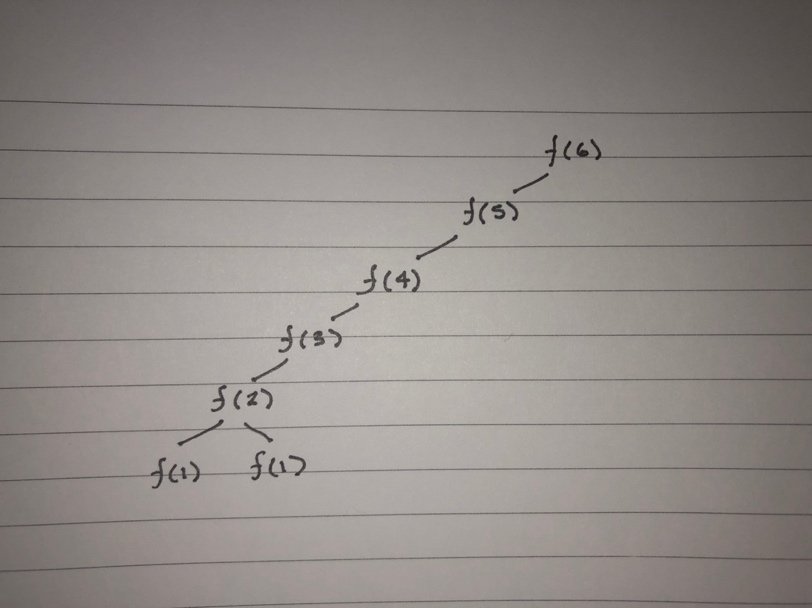 f(6)
f(5)
f(4)
f(3)
f(2)
f(1) f(1)